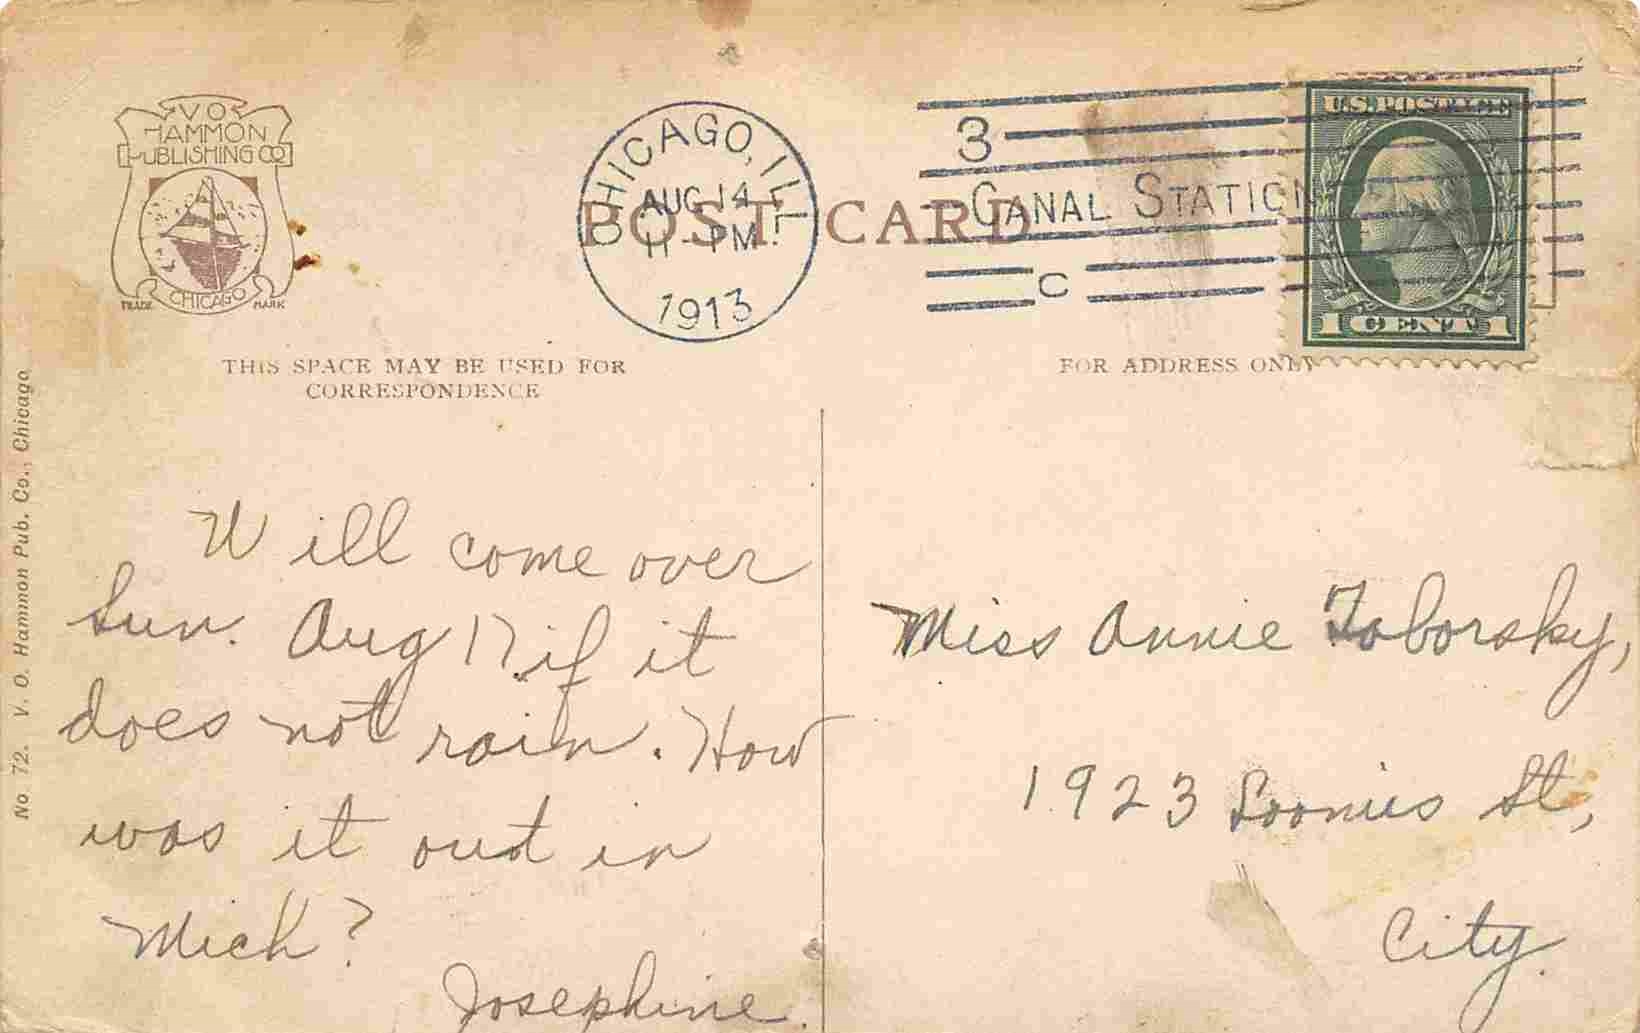 V O
HAMMON
PUBLISHING CO
CHICAGO
TRADE MARK
CHICAGO, ILL.
AUG 14
11 - PM
1913
POST CARD
3
CANAL STATION
C
U.S. POSTAGE
1 CENT 1
THIS SPACE MAY BE USED FOR
CORRESPONDENCE
FOR ADDRESS ONLY
No. 72. V. O. Hammon Pub. Co., Chicago
Will come over
Sun. Aug 17 if it
does not rain. How
was it out in
Mich?
Josephine.
Miss Annie Taborsky,
1923 Loomis St,
City.